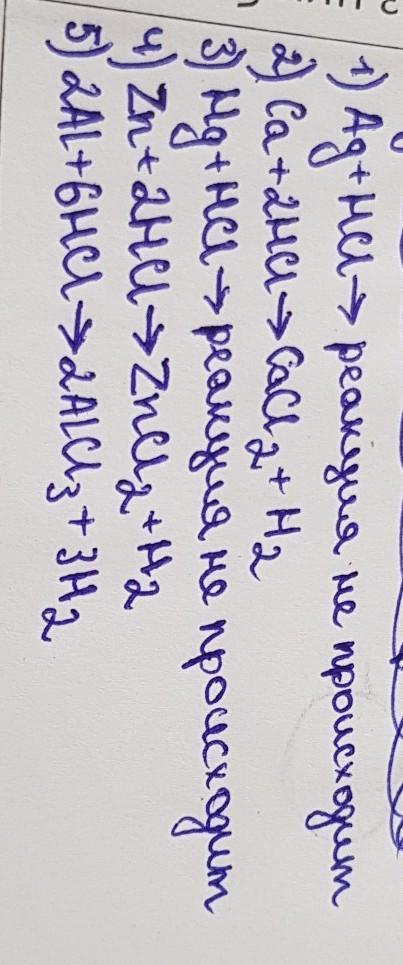 1) Ag + HCl → реакция не происходит
2) Ca + 2HCl → CaCl₂ + H₂
3) Hg + HCl → реакция не происходит
4) Zn + 2HCl → ZnCl₂ + H₂
5) 2Al + 6HCl → 2AlCl₃ + 3H₂